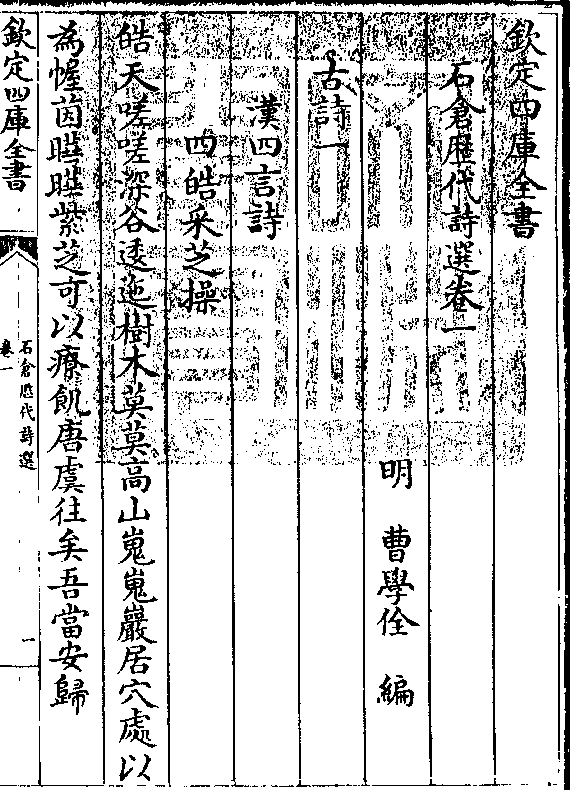 欽定四庫全書
石倉歷代詩選卷一
明 曹學佺 編
古詩一
漢四言詩
四皓采芝操
皓天嗟嗟深谷逶迤樹木莫莫高山嵬嵬巖居穴處以
為幄茵曄曄紫芝可以療飢唐虞往矣吾當安歸
欽定四庫全書
石倉歷代詩選
卷一
一